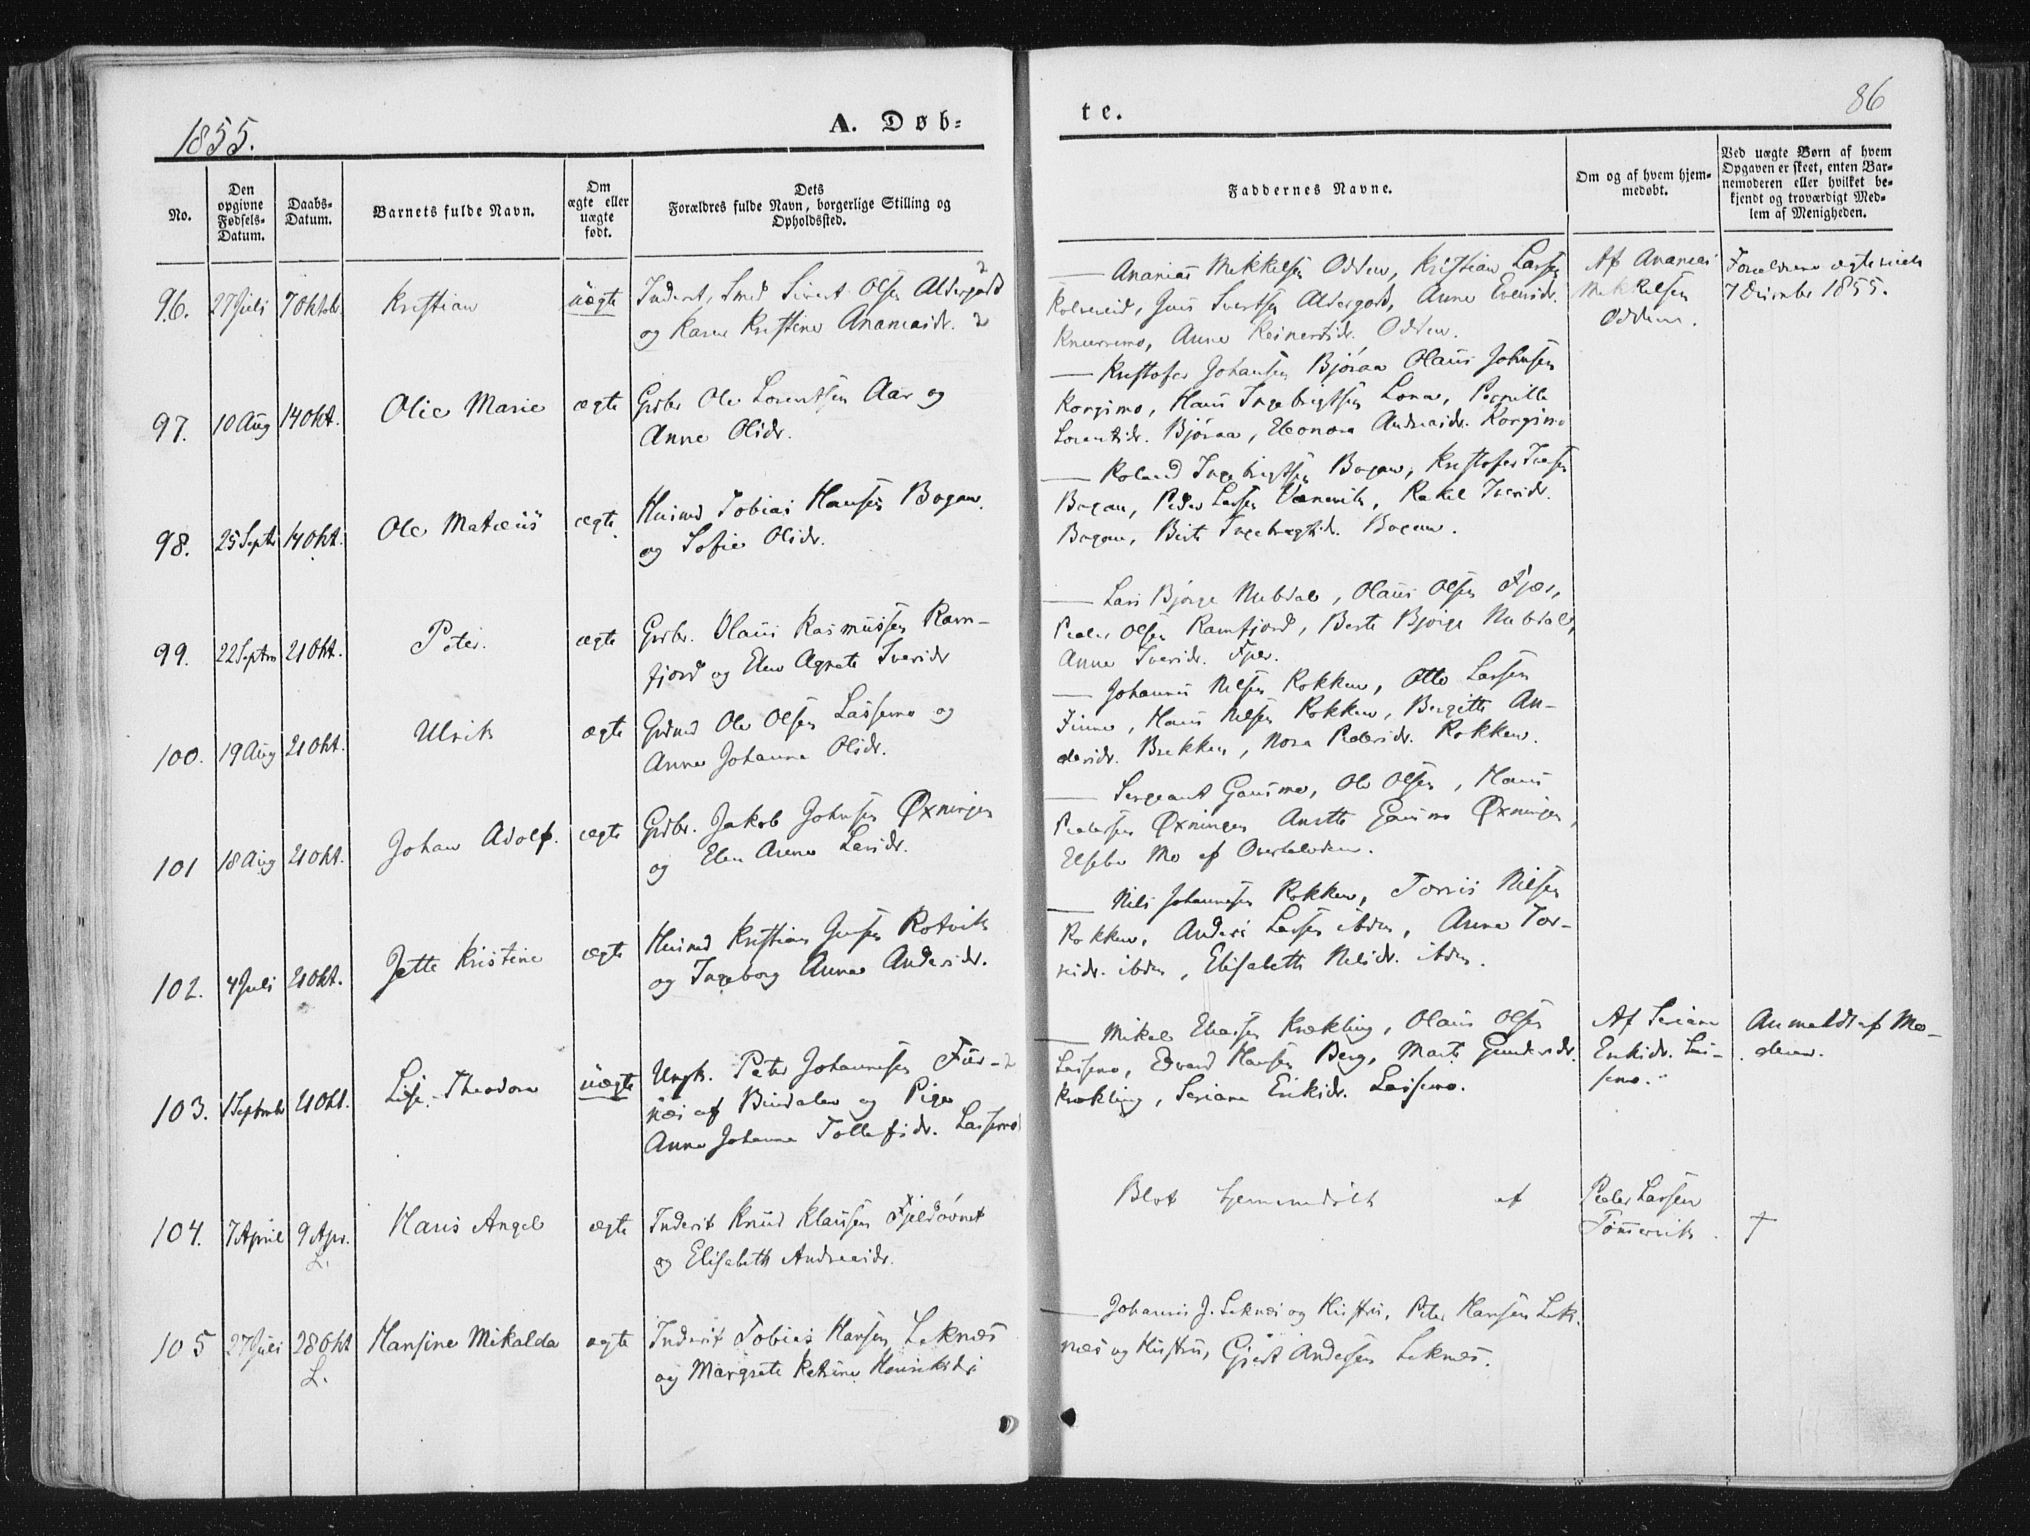 1855.
A. Døb-
te.
86
No.
Den opgivne Fødsels-Datum.
Daabs-Datum.
Barnets fulde Navn.
Om ægte eller uægte født.
Dets Forældres fulde Navn, borgerlige Stilling og Opholdssted.
Faddernes Navne.
Om og af hvem hjem-medøbt.
Ved uægte Børn af hvem Opgaven er skeet, enten Bar-nemoderen eller hvilket be-kjendt og troværdigt Med-lem af Menigheden.
96. 27 Juli 7 Oktob. Kristian uægte Inderst, Smed Sivert Olsen Aldergard 2
og Karen Kristine Ananiasdr. 2
— Ananias Mikkelsen Odden, Kristian Larsen
Kolvereid, Jens Sivertsen Aldergard, Anne Evensdr.
Odden.
Af Ananias
Mikkelsen
Odden.
Forældrene ægteviede
7 December 1855.
97. 10 Aug 14 Okt. Olie Marie ægte Grdbr. Ole Lorentsen Aar og
Anne Olsdr.
— Kristofer Johansen Bjøraa Olaus Johnsen
Kongsmo, Hans Ingebrigtsen Lona, Pernille
Lorentsdr. Bjøraa, Eleonora Andreasdr. Kongsmo
98. 25 Septbr 14 Okt. Ole Matæus ægte Husmd Tobias Hansen Bogan
og Sofie Olsdr.
— Roland Ingebrigtsen Bogan, Kristofer Iversen
Bogan, Peder Larsen, Rakel Iversdr.
Bogan, Berte Ingebrigtsdr. Bogan.
99. 22 Septbr 21 Okt. Peter. ægte Grdbr. Olaus Rasmussen Ram-
fjord og Elen Agnete Iversdr
— Lars Bjørge Nubdal, Olaus Olsen Fjær,
Peder Olsen Ramfjord, Berte Bjørge Nubdal,
Anne Iversdr. Fjær.
100. 19 Aug 21 Okt. Ulrik ægte Grdmd Ole Olsen Lassemo og
Anne Johanna Olsdr.
— Johannes Nilsen Rokken, Otto Larsen
Finne, Hans Nilsen Rokken, Bergitte An-
dersdr. Brekken, Nora Pedersdr. Rokken.
101 18 Aug 21 Okt. Johan Adolf. ægte Grdbr. Jakob Johnsen Øxningen
og Elen Anna Larsdr.
— Sergeant Gausmo, Ole Olsen, Hans
Pedersen Øxningen Anette Gausmo Øxningen,
Elsebe Mo af Overhalvden.
102. 4 Juli 21 Okt. Jette Kristine ægte Husmd Kristian Jensen Rotvik
og Ingeborg Anna Andersdr.
— Nils Johannesen Rokken, Torris Nilsen
Rokken, Anders Larsen ibdm, Anne Tor-
risdr. ibdm, Elisabeth Nilsdr. ibdm.
103. 1 Septembr 21 Okt. Lise Theodora uægte Ungk. Peter Johannesen Fur- 2
næs af Bindalen og Pige
Anne Johanna Tollefsdr. Lassemo
— Mikal Eliassen Krækling, Olaus Olsen
Lassemo, Edvard Hansen Berg, Marte Gundersdr.
Krækling, Seriane Eriksdr. Lassemo.
Af Seriane
Eriksdr. Las-
semo.
Anmeldt af Mo-
deren.
104. 7 April 9 Apr. L. Hans Angel ægte Inderst Knud Klausen Fjeldavnet
og Elisabeth Andreasdr.
Blot hjemmedøbt af Peder Larsen
Tømmervik. †
105 27 Juli 28 Okt L. Hansine Mikalda ægte Inderst Tobias Hansen Leknæs
og Margrete Katrine Henriksdr.
— Johannes J. Leknæs og Hustru, Peter Hansen Lek-
næs og Hustru, Gjert Andersen Leknæs.